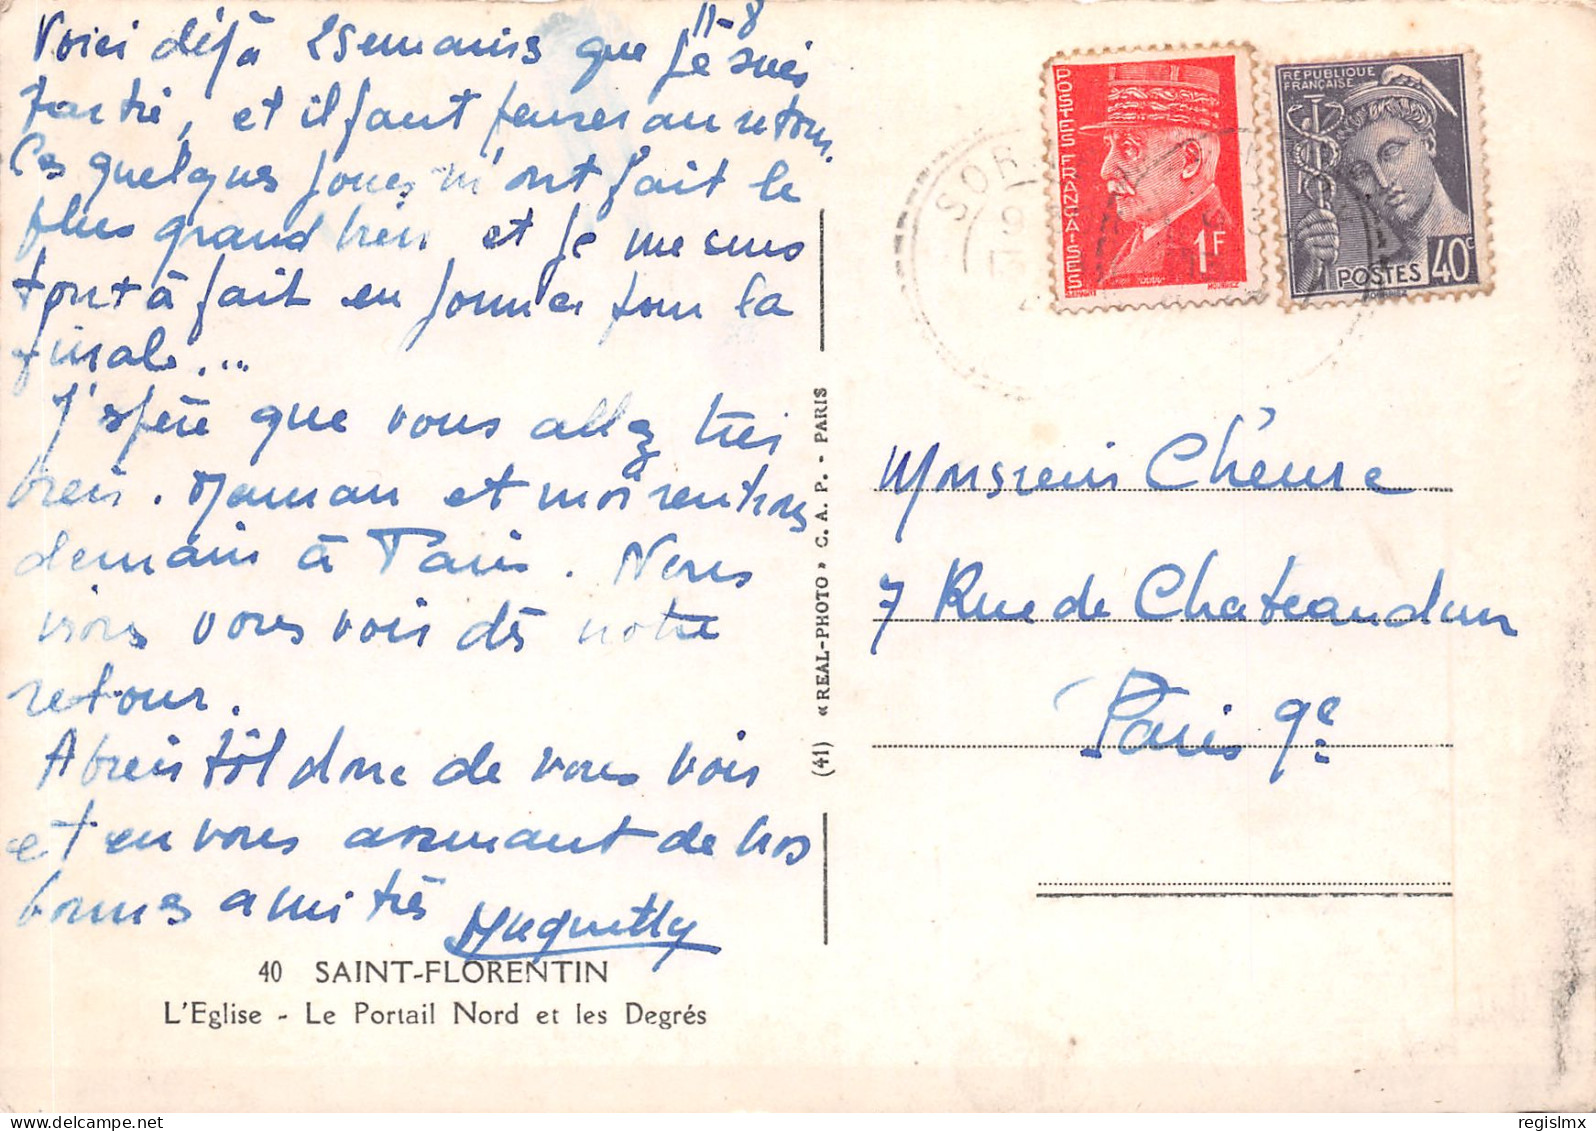 11-8
Voici déjà 2 semaines que je suis
partie, et il faut penser au retour.
Ces quelques jours m'ont fait le
plus grand bien et je me sens
tout à fait en formes pour la
finale...
J'espère que vous allez très
bien. Maman et moi rentrons
demain à Paris. Nous
irons vous voir dès notre
retour.
A bientôt donc de vous voir
et en vous assurant de nos
bonnes amitiés Huguette
40 SAINT-FLORENTIN
L'Eglise - Le Portail Nord et les Degrés
(41) « REAL-PHOTO » C. A. P. - PARIS
POSTES FRANÇAISES
1F
RÉPUBLIQUE
FRANÇAISE
POSTES 40c
Monsieur Cheure
7 Rue de Chateaudun
Paris 9e
regislmx